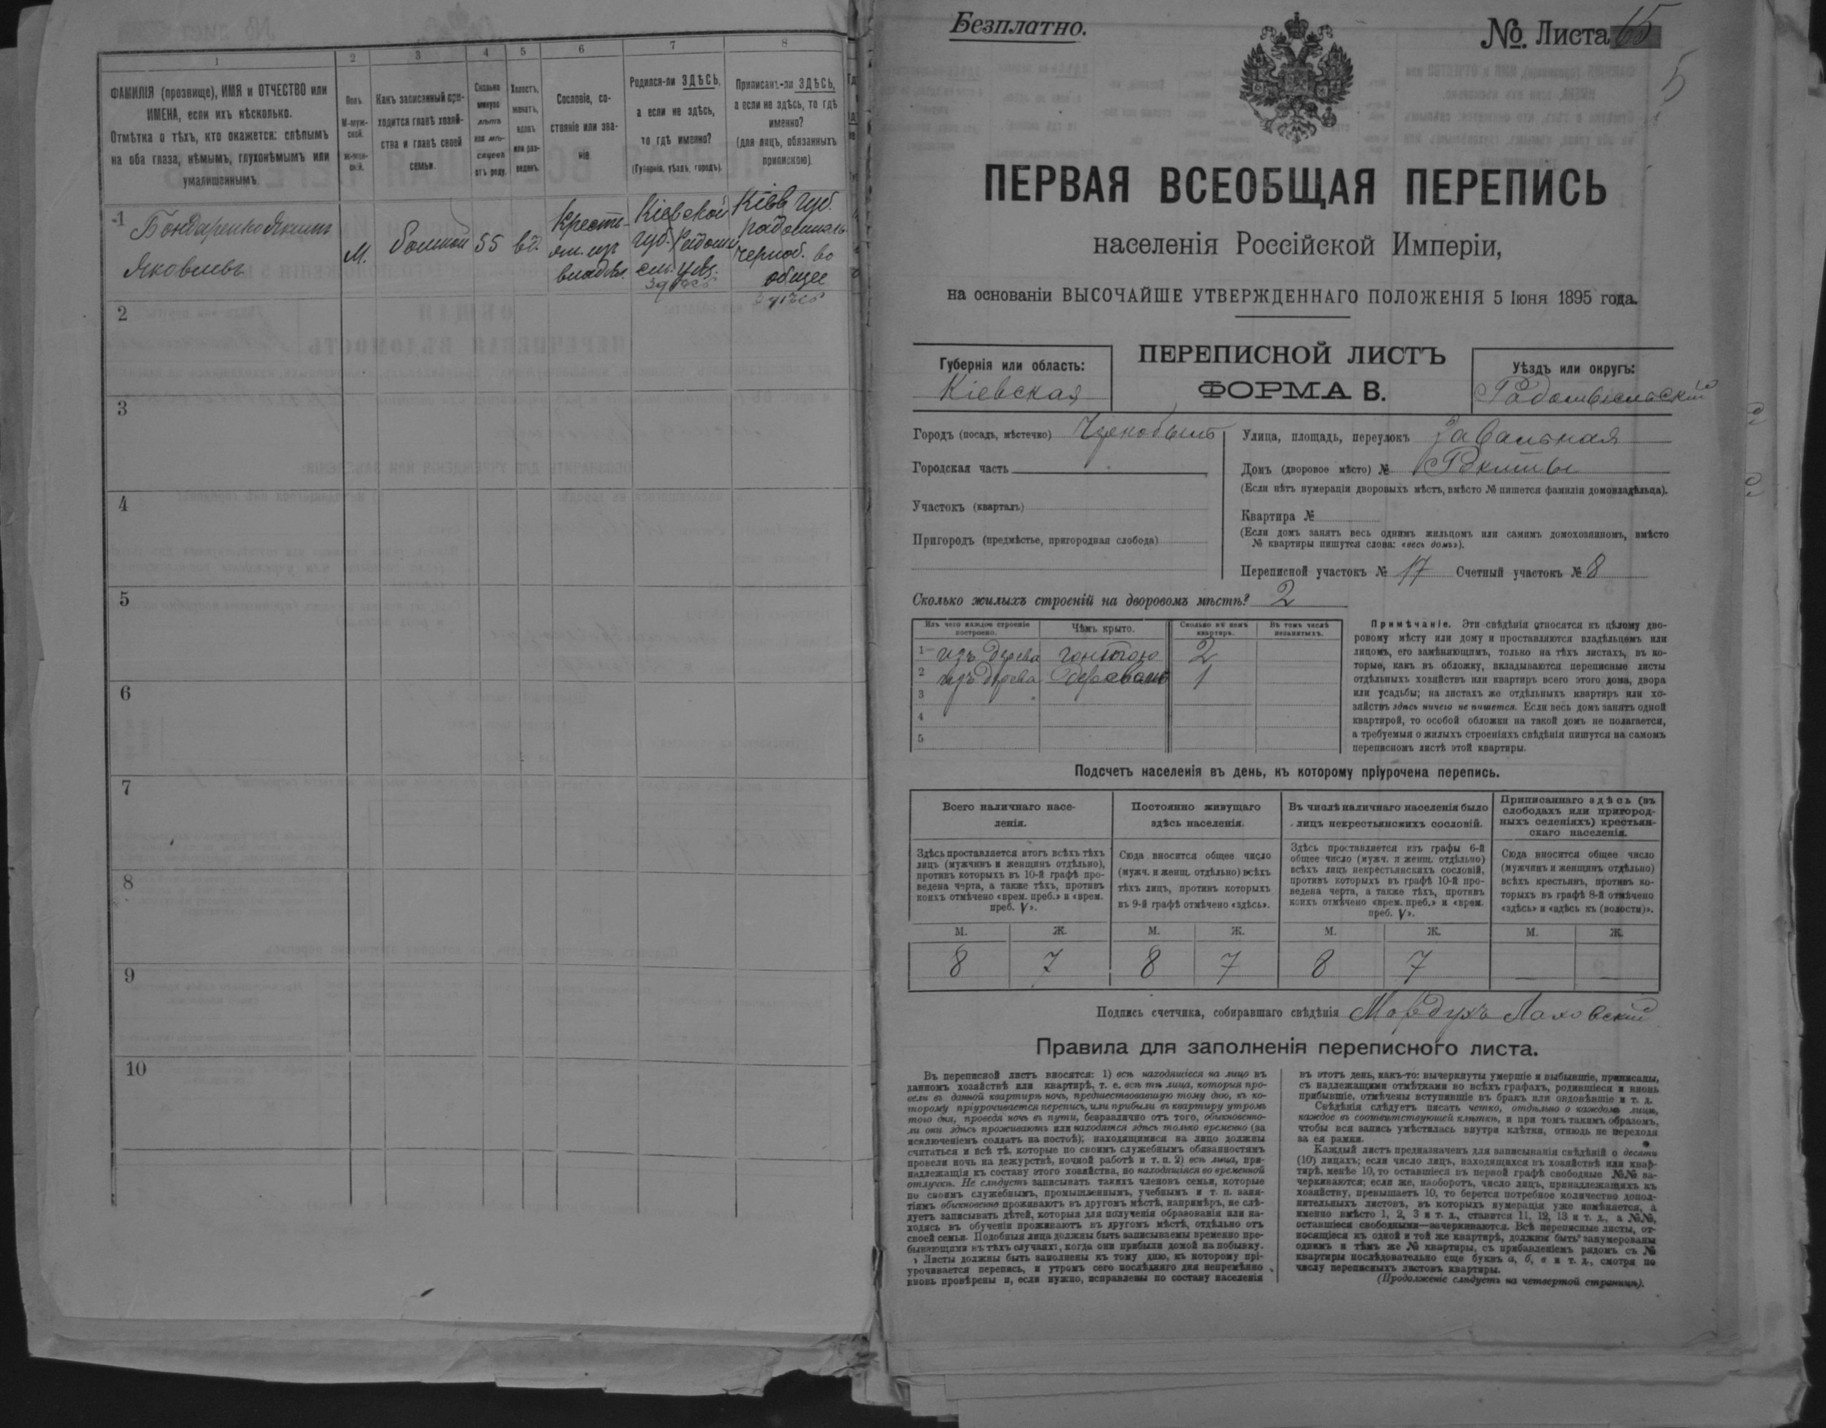 1
2
3
4
5
6
7
8
ФАМИЛІЯ (прозвище), ИМЯ и ОТЧЕСТВО или
ИМЕНА, если ихъ нѣсколько.
Отмѣтка о тѣхъ, кто окажется: слѣпымъ
на оба глаза, нѣмымъ, глухонѣмымъ или
умалишеннымъ
Полъ
М-муж-
ской.
Ж-жен-
скій.
Какъ записанный при-
ходится главѣ хозяй-
ства и главѣ своей
семьи.
Сколько
минуло
лѣтъ
или мѣ-
сяцевъ
отъ роду.
Холостъ,
женатъ,
вдовъ
или раз-
веденъ.
Сословіе, со-
стояніе или зва-
ніе
Родился-ли ЗДѢСЬ,
а если не здѣсь,
то гдѣ именно?
(Губернія, уѣздъ, городъ).
Приписанъ-ли ЗДѢСЬ,
а если не здѣсь, то гдѣ
именно?
(для лицъ, обязанныхъ
припискою).
1
Бондаренко Якимъ
Яковлевъ
М.
55
вд.
Крестя-
ян. изъ
владѣл.
Кіевской
губ. Радомы
сл. уѣз.
здѣсь
Кіев губ
радомысль
черноб. во
общее
здѣсь
2
3
4
5
6
7
8
9
10
Безплатно.
№. Листа 15
5
ПЕРВАЯ ВСЕОБЩАЯ ПЕРЕПИСЬ
населенія Россійской Имперіи,
на основаніи ВЫСОЧАЙШЕ УТВЕРЖДЕННАГО ПОЛОЖЕНІЯ 5 Іюня 1895 года.
Губернія или область:
Кіевская
ПЕРЕПИСНОЙ ЛИСТЪ
ФОРМА В.
Уѣздъ или округъ:
Радомысльскій
Городъ (посадъ, мѣстечко) Чернобыль
Городская часть
Участокъ (кварталъ)
Пригородъ (предмѣстье, пригородная слобода)
Улица, площадь, переулокъ Завальная
Домъ (дворовое мѣсто) №
(Если нѣтъ нумераціи дворовыхъ мѣстъ, вмѣсто № пишется фамилія домовладѣльца).
Квартира №
(Если домъ занятъ весь однимъ жильцомъ или самимъ домохозяиномъ, вмѣсто
№ квартиры пишутся слова: «весь домъ»).
Переписной участокъ № 17 Счетный участокъ № 8
Сколько жилыхъ строеній на дворовомъ мѣстѣ? 2
Изъ чего каждое строеніе
построено.
Чѣмъ крыто.
Сколько въ немъ
квартиръ.
Въ томъ числѣ
незанятыхъ.
1 изъ дерева гонтою 2
2 изъ дерева деревомъ 1
3
4
5
Примѣчаніе. Эти свѣдѣнія относятся къ цѣлому дво-
ровому мѣсту или дому и проставляются владѣльцемъ или
лицомъ, его замѣняющимъ, только на тѣхъ листахъ, въ ко-
торые, какъ въ обложку, вкладываются переписные листы
отдѣльныхъ хозяйствъ или квартиръ всего этого дома, двора
или усадьбы; на листахъ же отдѣльныхъ квартиръ или хо-
зяйствъ здѣсь ничего не пишется. Если весь домъ занятъ одной
квартирой, то особой обложки на такой домъ не полагается,
а требуемыя о жилыхъ строеніяхъ свѣдѣнія пишутся на самомъ
переписномъ листѣ этой квартиры.
Подсчетъ населенія въ день, къ которому пріурочена перепись.
Всего наличнаго насе-
ленія.
Здѣсь проставляется итогъ всѣхъ тѣхъ
лицъ (мужчинъ и женщинъ отдѣльно),
противъ которыхъ въ 10-й графѣ про-
ведена черта, а также тѣхъ, противъ
коихъ отмѣчено «врем. преб.» и «врем.
преб. V».
Постоянно живущаго
здѣсь населенія.
Сюда вносится общее число
(мужч. и женщ. отдѣльно) всѣхъ
тѣхъ лицъ, противъ которыхъ
въ 9-й графѣ отмѣчено «здѣсь».
Въ числѣ наличнаго населенія было
лицъ некрестьянскихъ сословій.
Здѣсь проставляется изъ графы 6-й
общее число (мужч. и женщ. отдѣльно)
всѣхъ лицъ некрестьянскихъ сословій,
противъ которыхъ въ графѣ 10-й про-
ведена черта, а также тѣхъ, противъ
коихъ отмѣчено «врем. преб.» и «врем.
преб. V».
Приписаннаго здѣсь (въ
слободахъ или пригород-
ныхъ селеніяхъ) крестьян-
скаго населенія.
Сюда вносится общее число
(мужчинъ и женщинъ отдѣльно)
всѣхъ крестьянъ, противъ ко-
торыхъ въ графѣ 8-й отмѣчено
«здѣсь» и «здѣсь къ (волости)».
М. Ж. М. Ж. М. Ж. М. Ж.
8 7 8 7 8 7 — —
Подпись счетчика, собиравшаго свѣдѣнія Мордухъ Лаховскій
Правила для заполненія переписного листа.
Въ переписной листъ вносятся: 1) всѣ находящіеся на лицо въ
данномъ хозяйствѣ или квартирѣ, т. е. всѣ тѣ лица, которыя про-
вели въ данной квартирѣ ночь, предшествовавшую тому дню, къ ко-
торому пріурочивается перепись, или прибыли въ квартиру утромъ
того дня, проведя ночь въ пути, безразлично отъ того, обыкновенно-
ли они здѣсь проживаютъ или находятся здѣсь только временно (за
исключеніемъ солдатъ на постоѣ); находящимися на лицо должны
считаться и всѣ тѣ, которые по своимъ служебнымъ обязанностямъ
провели ночь на дежурствѣ, ночной работѣ и т. п. 2) всѣ лица, при-
надлежащія къ составу этого хозяйства, но находящіяся во временной
отлучкѣ. Не слѣдуетъ записывать такихъ членовъ семьи, которые
по своимъ служебнымъ, промышленнымъ, учебнымъ и т. п. заня-
тіямъ обыкновенно проживаютъ въ другомъ мѣстѣ, напримѣръ, не слѣ-
дуетъ записывать дѣтей, которыя для полученія образованія или на-
ходясь въ обученіи проживаютъ въ другомъ мѣстѣ, отдѣльно отъ
своей семьи. Подобныя лица должны быть записываемы временно пре-
бывающими въ тѣхъ случаяхъ, когда они прибыли домой на побывку.
Листы должны быть заполнены къ тому дню, къ которому прі-
урочивается перепись, и утромъ сего послѣдняго дня непремѣнно
вновь провѣрены и, если нужно, исправлены по составу населенія
въ этотъ день, какъ-то: вычеркнуты умершіе и выбывшіе, приписаны,
съ надлежащими отмѣтками во всѣхъ графахъ, родившіеся и вновь
прибывшіе, отмѣчены вступившіе въ бракъ или овдовѣвшіе и т. д.
Свѣдѣнія слѣдуетъ писать четко, отдѣльно о каждомъ лицѣ,
каждое въ соотвѣтствующей клѣткѣ, и при томъ такимъ образомъ,
чтобы вся запись умѣстилась внутри клѣтки, отнюдь не переходя
за ея рамки.
Каждый листъ предназначенъ для записыванія свѣдѣній о десяти
(10) лицахъ; если число лицъ, находящихся въ хозяйствѣ или квар-
тирѣ, менѣе 10, то оставшіеся въ первой графѣ свободные №№ за-
черкиваются; если же, наоборотъ, число лицъ, принадлежащихъ къ
хозяйству, превышаетъ 10, то берется потребное количество допол-
нительныхъ листовъ, въ которыхъ нумерація уже измѣняется, а
именно вмѣсто 1, 2, 3 и т. д., ставится 11, 12, 13 и т. д., а №№,
оставшіеся свободными—зачеркиваются. Всѣ переписные листы, от-
носящіеся къ одной и той же квартирѣ, должны быть занумерованы
однимъ и тѣмъ же № квартиры, съ прибавленіемъ рядомъ съ №
квартиры послѣдовательно еще буквъ а, б, в и т. д., смотря по
числу переписныхъ листовъ квартиры.
(Продолженіе слѣдуетъ на четвертой страницѣ).